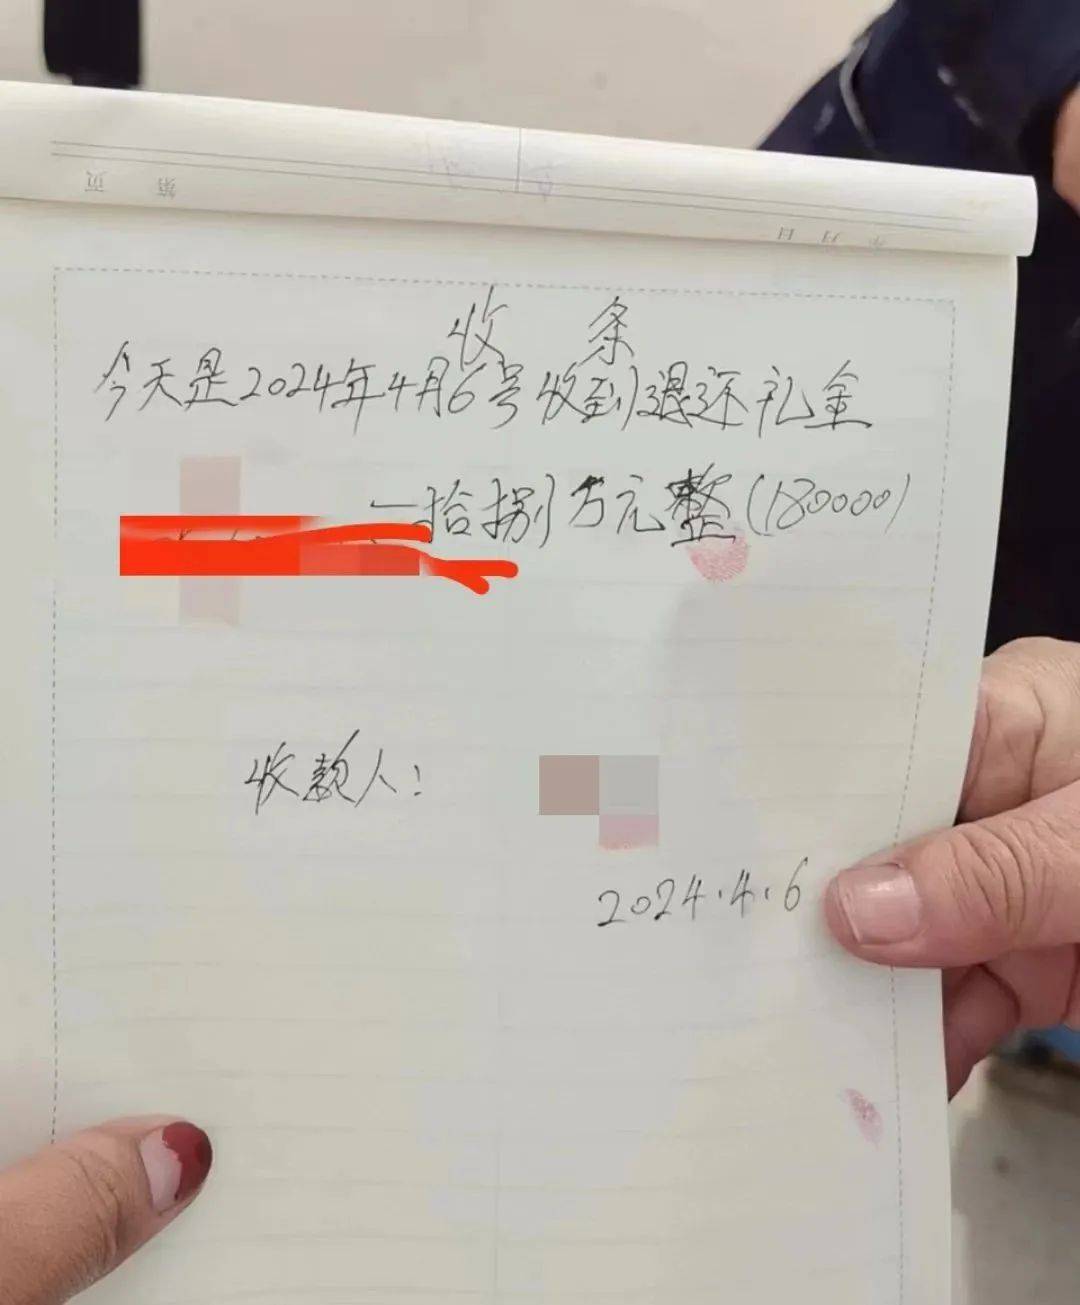 第 页
年 月 日
收条
今天是2024年4月6号收到退还礼金
一拾捌万元整(180000)
收款人:
2024.4.6